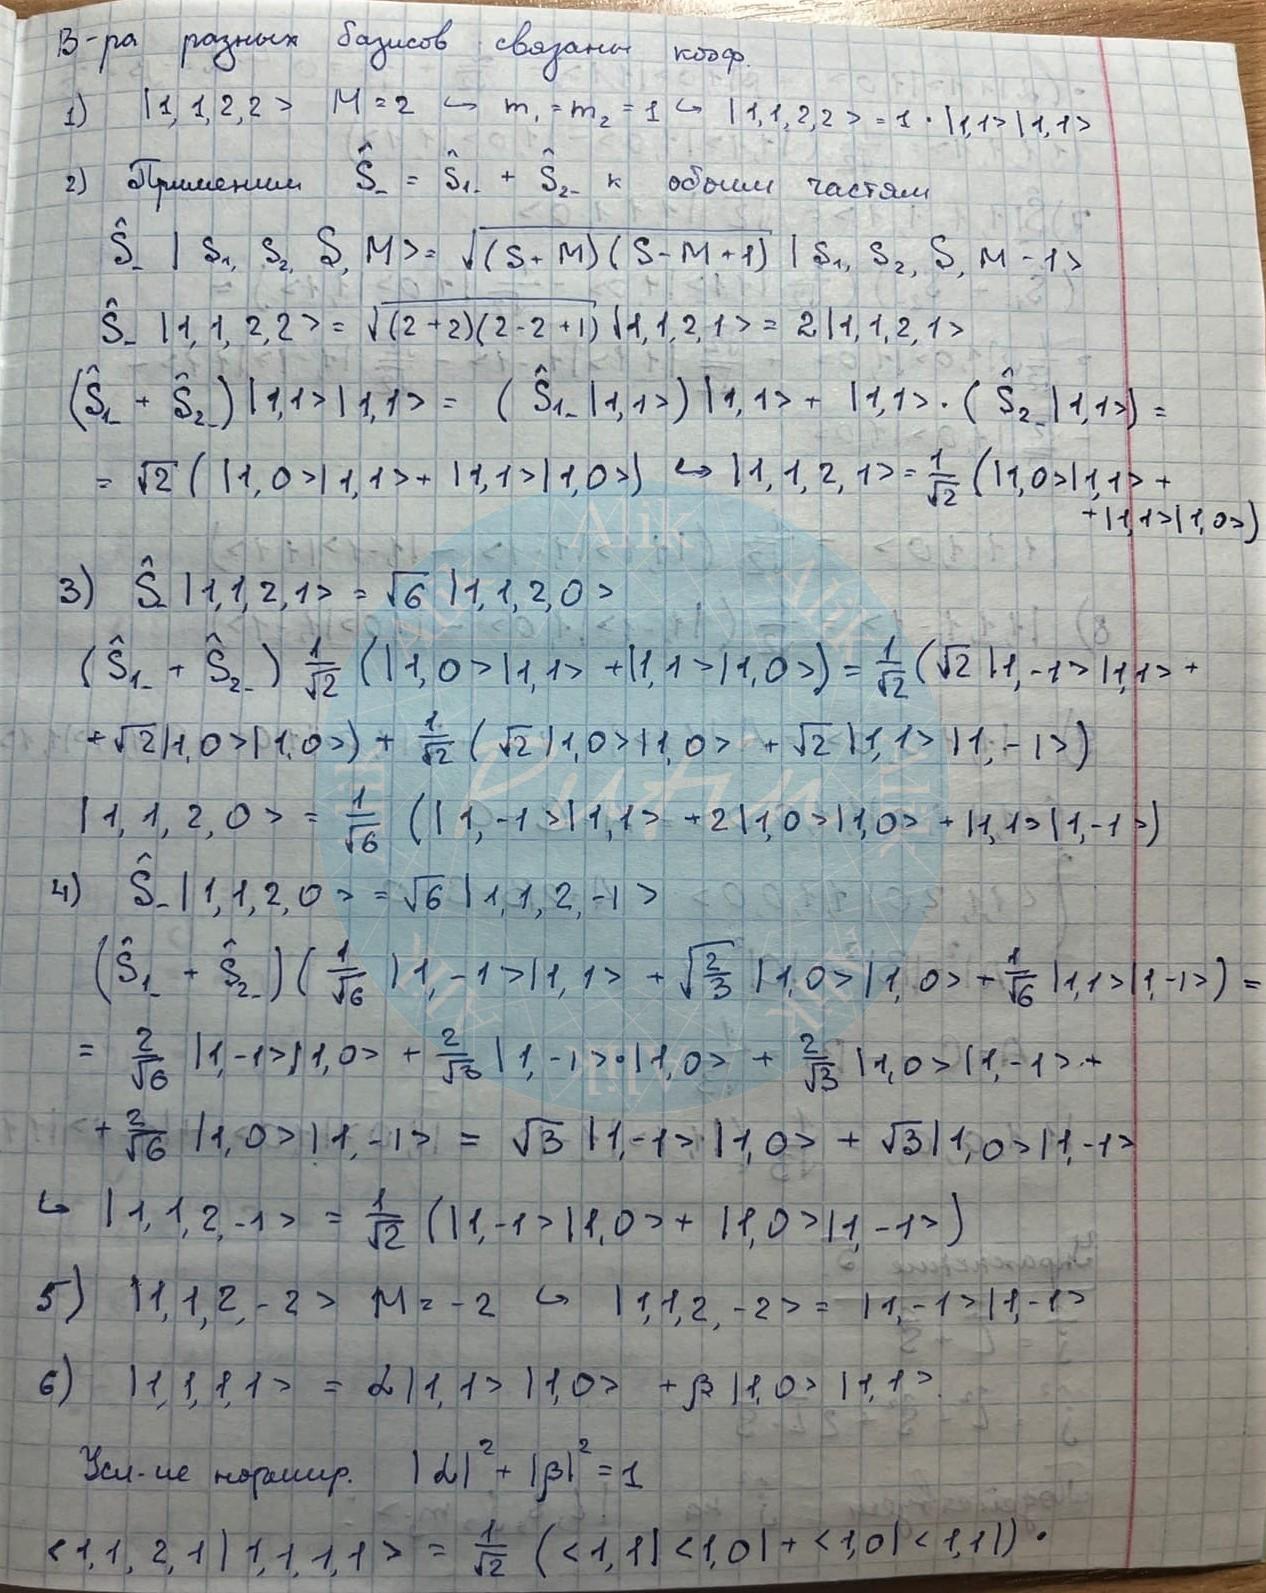 В-ра разных базисов связаны коэф.
1) |1,1,2,2> M=2 ↪ m₁=m₂=1 ↪ |1,1,2,2>=1·|1,1>|1,1>
2) Применим Ŝ₋ = Ŝ₁₋ + Ŝ₂₋ к обоим частям
Ŝ₋ |S₁, S₂, S, M> = √(S+M)(S-M+1) |S₁, S₂, S, M-1>
Ŝ₋ |1,1,2,2> = √(2+2)(2-2+1) |1,1,2,1> = 2|1,1,2,1>
(Ŝ₁₋ + Ŝ₂₋)|1,1>|1,1> = (Ŝ₁₋|1,1>)|1,1> + |1,1>·(Ŝ₂₋|1,1>) =
= √2 (|1,0>|1,1> + |1,1>|1,0>) ↪ |1,1,2,1> = 1/√2 (|1,0>|1,1> +
+|1,1>|1,0>)
3) Ŝ₋|1,1,2,1> = √6 |1,1,2,0>
(Ŝ₁₋ + Ŝ₂₋) 1/√2 (|1,0>|1,1> + |1,1>|1,0>) = 1/√2 (√2 |1,-1>|1,1> +
+ √2|1,0>|1,0>) + 1/√2 (√2|1,0>|1,0> + √2|1,1>|1,-1>)
|1,1,2,0> = 1/√6 (|1,-1>|1,1> + 2|1,0>|1,0> + |1,1>|1,-1>)
4) Ŝ₋|1,1,2,0> = √6 |1,1,2,-1>
(Ŝ₁₋ + Ŝ₂₋)(1/√6 |1,-1>|1,1> + √2/3 |1,0>|1,0> + 1/√6 |1,1>|1,-1>) =
= 2/√6 |1,-1>|1,0> + 2/√3 |1,-1>·|1,0> + 2/√3 |1,0>|1,-1> +
+ 2/√6 |1,0>|1,-1> = √3 |1,-1>|1,0> + √3|1,0>|1,-1>
↪ |1,1,2,-1> = 1/√2 (|1,-1>|1,0> + |1,0>|1,-1>)
5) |1,1,2,-2> M=-2 ↪ |1,1,2,-2> = |1,-1>|1,-1>
6) |1,1,1,1> = α|1,1>|1,0> + β|1,0>|1,1>
Усл-ие нормир. |α|² + |β|² = 1
<1,1,2,1|1,1,1,1> = 1/√2 (<1,1|<1,0| + <1,0|<1,1|)·
Alik
Alik
Putin
Alik
Alik
Alik